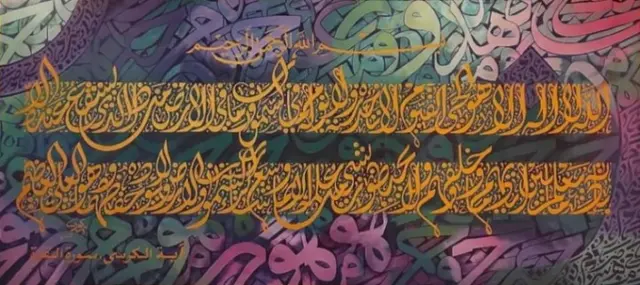 بسم الله الرحمن الرحيم
الله لا إله إلا هو الحي القيوم لا تأخذه سنة ولا نوم له ما في السموات وما في الأرض من ذا الذي يشفع عنده إلا
بإذنه يعلم ما بين أيديهم وما خلفهم ولا يحيطون بشيء من علمه إلا بما شاء وسع كرسيه السموات والأرض ولا يؤوده حفظهما وهو العلي العظيم
آية الكرسي، سورة البقرة